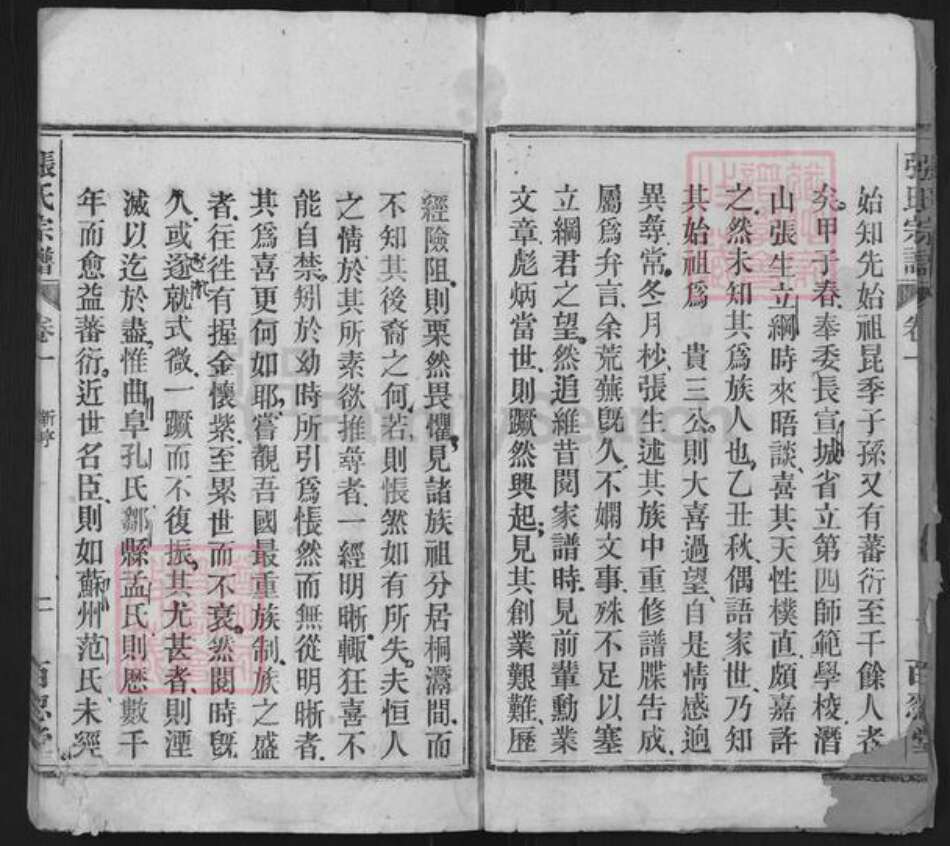 始知先始祖昆季子孫又有蕃衍至千餘人者
矣甲子春奉委長宣城省立第四師範學校潛
山張生立綱時來晤談喜其天性樸直頗嘉許
之然未知其爲族人也乙丑秋偶語家世乃知
其始祖爲　貴三公則大喜過望自是情感逈
異尋常冬月杪張生述其族中重修譜牒告成
屬爲弁言余荒蕪旣久不嫻文事殊不足以塞
立綱君之望然追維昔閱家譜時見前輩勳業
文章彪炳當世則蹶然興起見其創業艱難歷
經險阻則栗然畏懼見諸族祖分居桐灊間而
不知其後裔之何若則悵然如有所失夫恒人
之情於其所素欲推尋者一經明晰輒狂喜不
能自禁矧於幼時所引爲悵然而無從明晰者
其爲喜更何如耶嘗觀吾國最重族制族之盛
者往往有握金懷紫至累世而不衰然閱時旣
久或遂就式微一蹶而不復振其尤甚者則湮
滅以迄於盡惟曲阜孔氏鄒縣孟氏則歷數千
年而愈益蕃衍近世名臣則如蘇州范氏未經
張氏宗譜
卷一
新序
二
百忍堂
張氏宗譜
卷一
FamilySearch